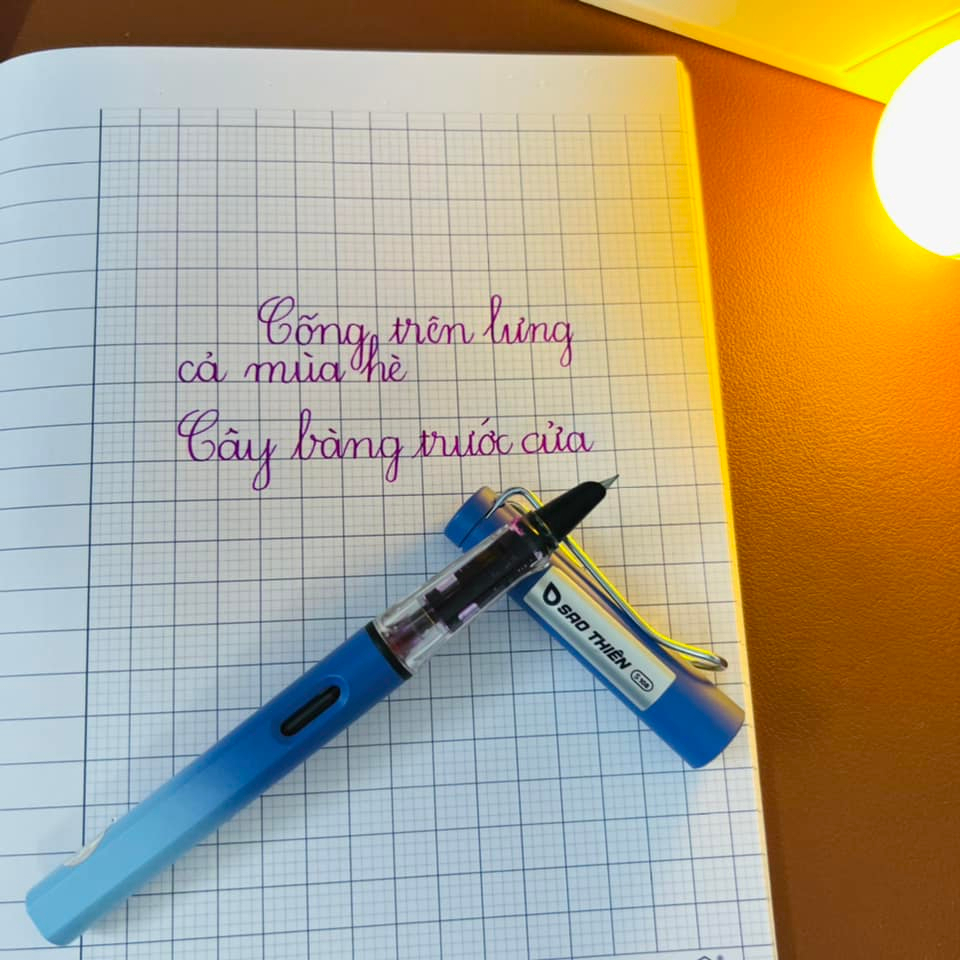 Cõng trên lưng
cả mùa hè
Cây bàng trước cửa
SAO THIÊN S 108